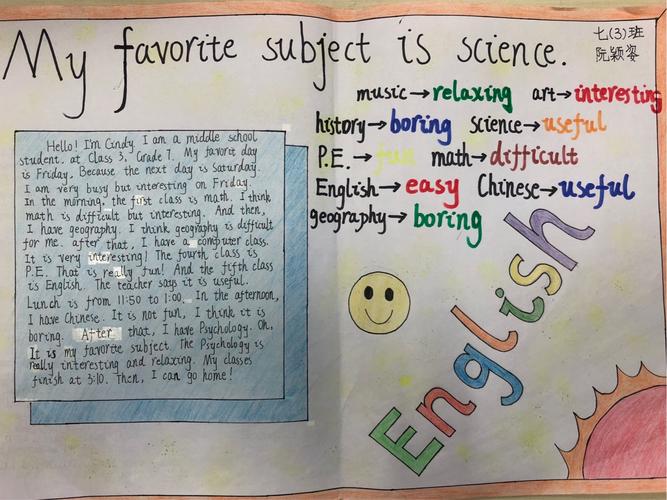 My favorite subject is science.
七(3)班
阮颖姿
music→relaxing art→interesting
history→boring science→useful
P.E.→fun math→difficult
English→easy Chinese→useful
geography→boring
Hello! I'm Cindy. I am a middle school
student. at Class 3, Grade 7. My favorit day
is Friday. Because the next day is Saturday.
I am very busy but interesting on Friday.
In the morning, the first class is math. I think
math is difficult but interesting. And then,
I have geography. I think geography is difficult
for me. after that, I have a computer class.
It is very interesting! The fourth class is
P.E. That is really fun! And the fifth class
is English. The teacher says it is useful.
Lunch is from 11:50 to 1:00. In the afternoon,
I have Chinese. It is not fun, I think it is
boring. After that, I have Psychology. Oh,
It is my favorite subject. The Psychology is
really interesting and relaxing. My classes
finish at 3:10. Then, I can go home!
English